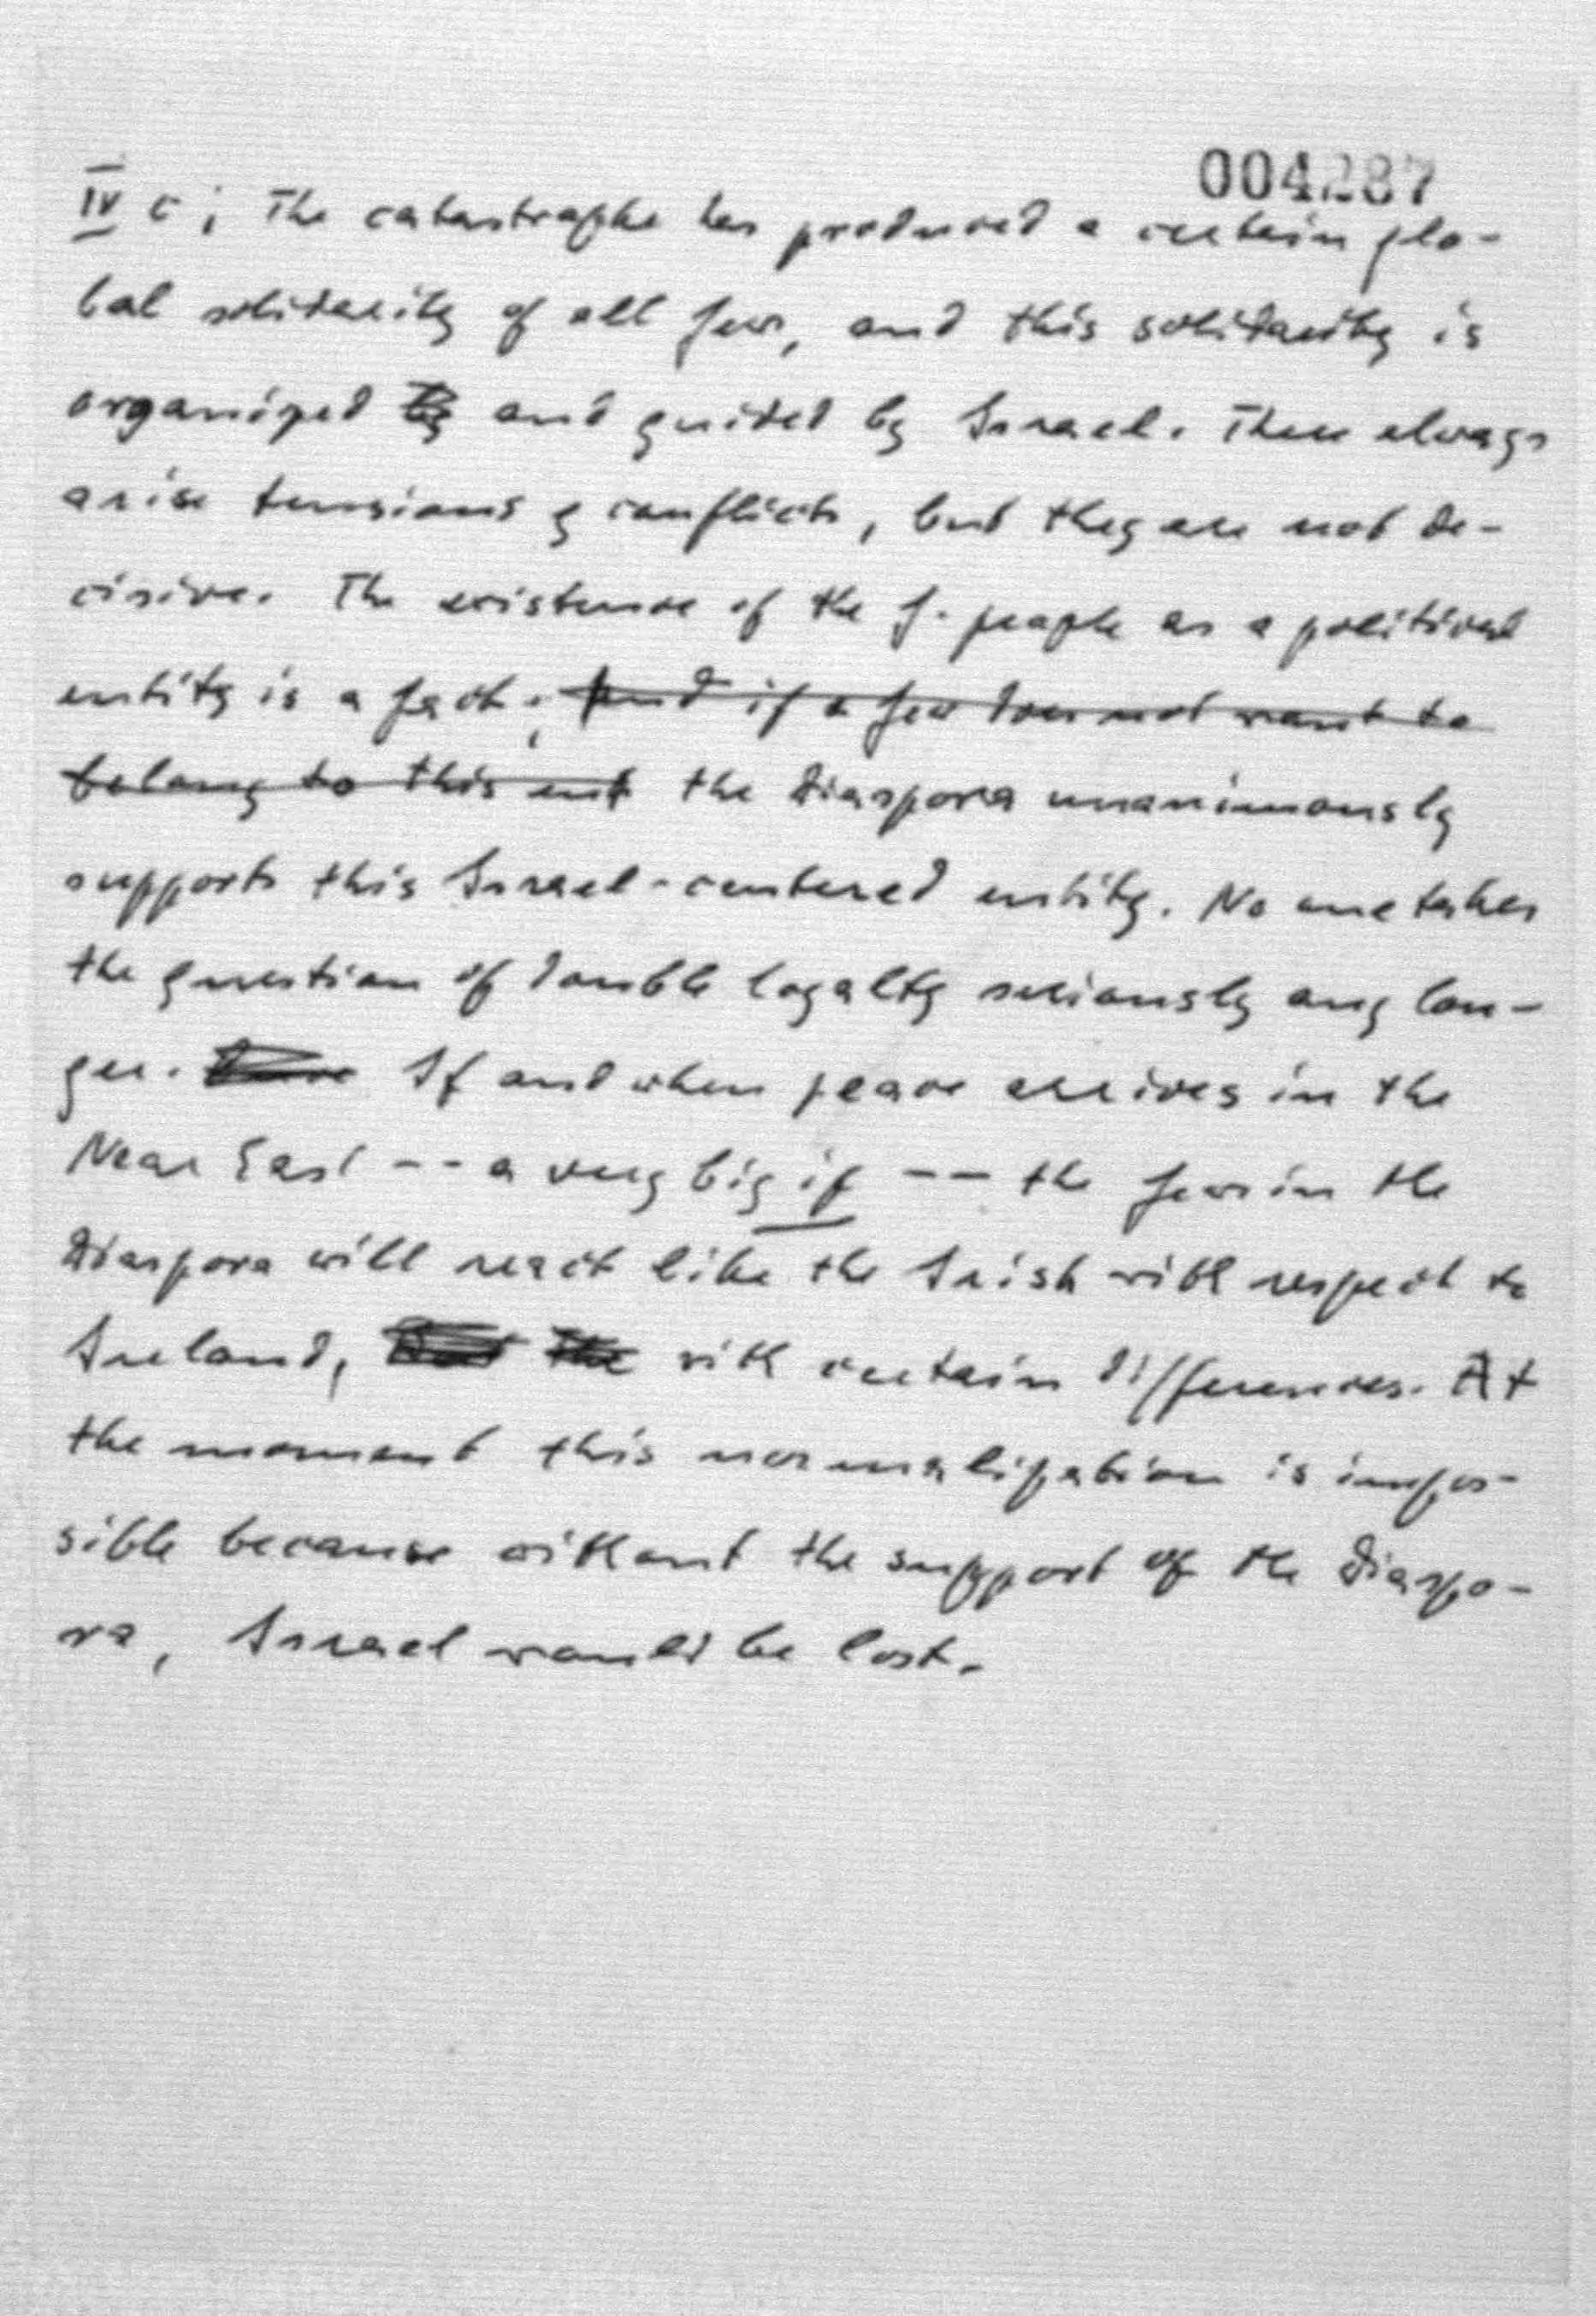 004287
IV c; The catastrophe has produced a certain glo-
bal solidarity of all Jews, and this solidarity is
organized by and guided by Israel. There always
arise tensions & conflicts, but they are not de-
cisive. The existence of the J. people as a political
entity is a fact; And if a Jew does not want to
belong to this ent the Diaspora unanimously
supports this Israel-centered entity. No one takes
the question of double loyalty seriously any lon-
ger. If and when peace arrives in the
Near East -- a very big if -- the Jews in the
Diaspora will react like the Irish with respect to
Ireland, with certain differences. At
the moment this normalization is impos-
sible because without the support of the Diaspo-
ra, Israel would be lost.